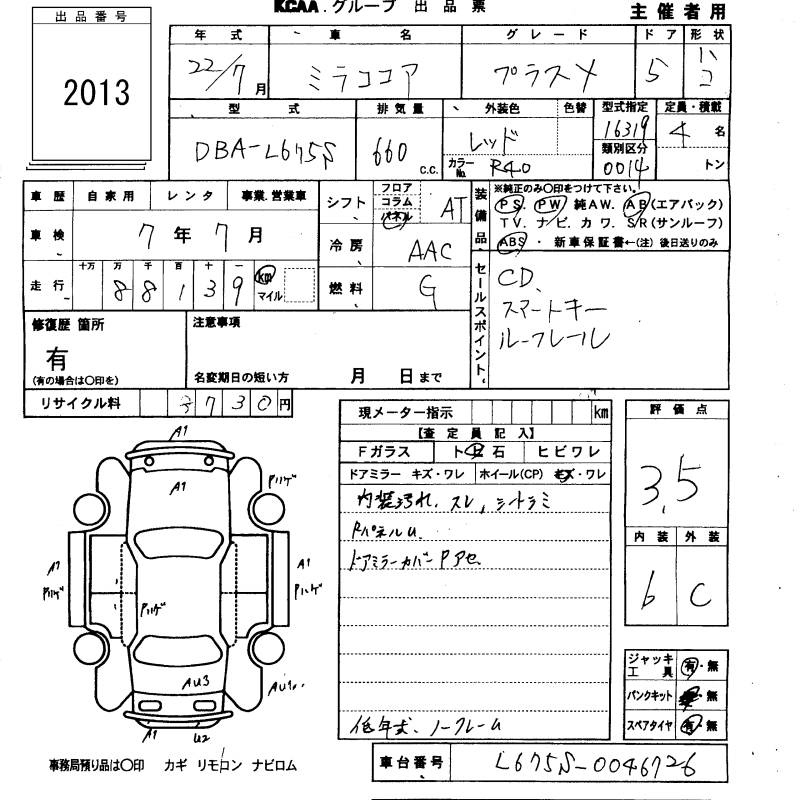 KCAA.グループ 出品票
主催者用
出品番号
2013
年式 車名 グレード ドア 形状
22/7月 ミラココア プラスX 5 ハコ
型式 排気量 外装色 色替 型式指定 定員・積載
DBA-L675S 660 C.C. レッド 16319 4名
カラーNo. R40 類別区分 0014 トン
車歴 自家用 レンタ 事業.営業車
車検 7年7月
走行 十万 万 千 百 十 一
8 8 1 3 9 km マイル
シフト フロア コラム パネル AT
冷房 AAC
燃料 G
装備品
※純正のみ〇印をつけて下さい。
PS. PW 純AW. AB(エアバック)
TV. ナビ. カワ. S/R(サンルーフ)
ABS・新車保証書←(注)後日送りのみ
セールスポイント
CD、
スマートキー
ルーフレール
修復歴 箇所
有
(有の場合は〇印を)
注意事項
名変期日の短い方 月 日まで
リサイクル料 7 3 0 円
現メーター指示 km
【査定員記入】
Fガラス ト ビ 石 ヒビワレ
ドアミラー キズ・ワレ ホイール(CP) キズ・ワレ
内装汚れ、スレ、シートラミ
RパネルU
ドアミラーカバーPアセ
低年式、ノーフレーム
評価点
3.5
内装 外装
6 C
ジャッキ工具 有・無
パンクキット 無
スペアタイヤ 有・無
A1
A1
Pハゲ
A1
Pハゲ
Pハゲ
A1
Pハゲ
AU3
A1
U2
事務局預り品は〇印 カギ リモコン ナビロム
車台番号 L675S-0046726